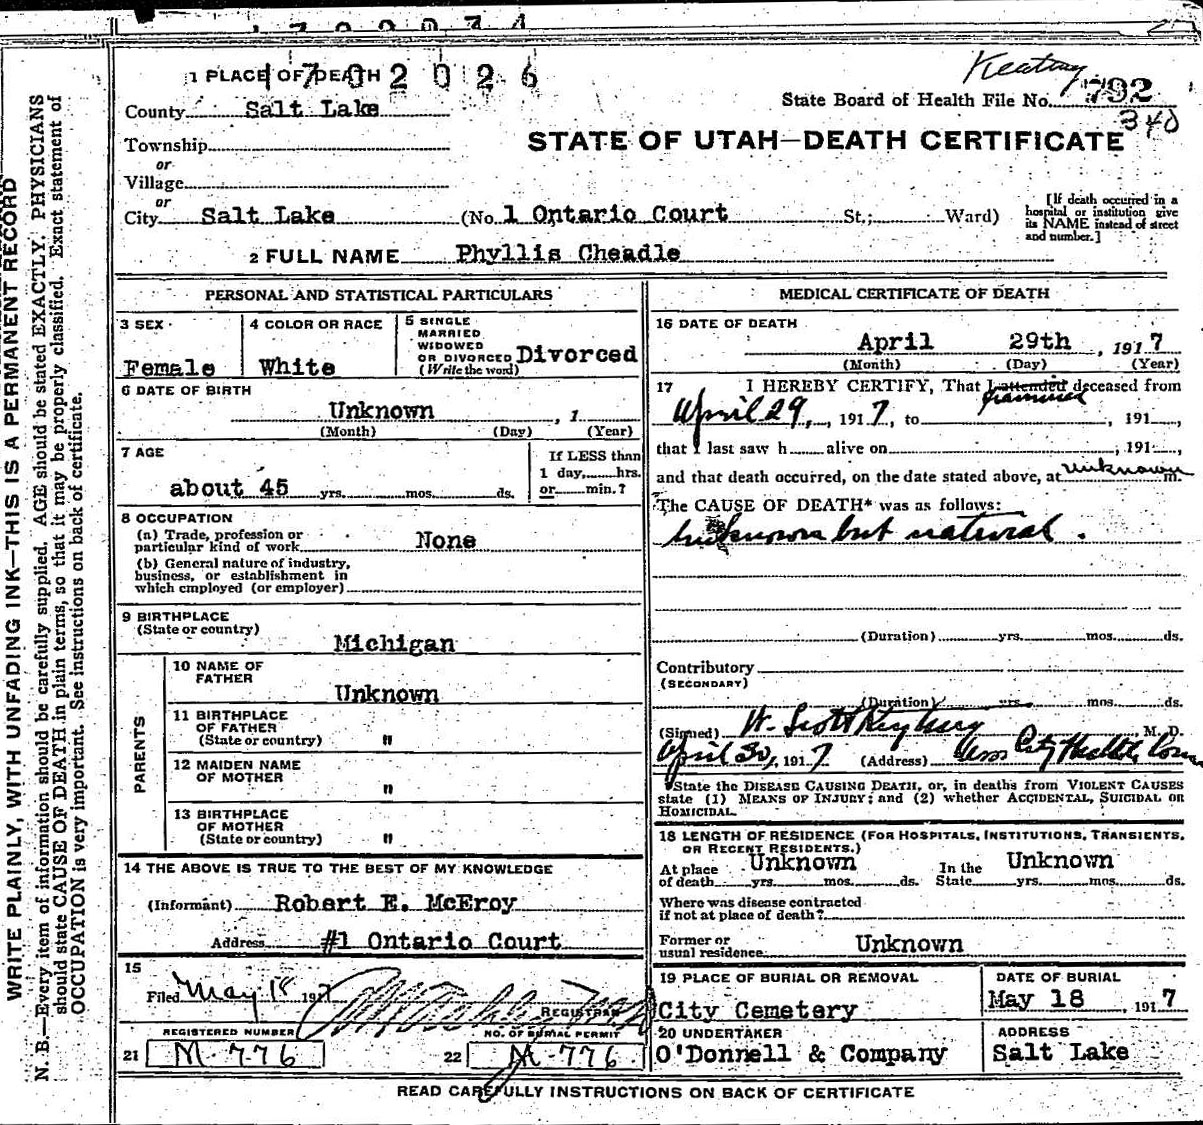 1 PLACE OF DEATH 1702026
Keating
County Salt Lake
State Board of Health File No. 792
340
Township
STATE OF UTAH—DEATH CERTIFICATE
or
Village
or
City Salt Lake (No. 1 Ontario Court St.; Ward)
[If death occurred in a
hospital or institution give
its NAME instead of street
and number.]
2 FULL NAME Phyllis Cheadle
PERSONAL AND STATISTICAL PARTICULARS
3 SEX
Female
4 COLOR OR RACE
White
5 SINGLE
MARRIED
WIDOWED
OR DIVORCED Divorced
(Write the word)
6 DATE OF BIRTH
Unknown , 1
(Month) (Day) (Year)
7 AGE
about 45 yrs. mos. ds.
If LESS than
1 day, hrs.
or min.?
8 OCCUPATION
(a) Trade, profession or
particular kind of work None
(b) General nature of industry,
business, or establishment in
which employed (or employer)
9 BIRTHPLACE
(State or country)
Michigan
PARENTS
10 NAME OF
FATHER
Unknown
11 BIRTHPLACE
OF FATHER
(State or country) "
12 MAIDEN NAME
OF MOTHER "
13 BIRTHPLACE
OF MOTHER
(State or country) "
14 THE ABOVE IS TRUE TO THE BEST OF MY KNOWLEDGE
(Informant) Robert E. McEroy
Address #1 Ontario Court
15
Filed May 18 1917
REGISTRAR
REGISTERED NUMBER
21 M-776
NO. OF BURIAL PERMIT
22 M-776
MEDICAL CERTIFICATE OF DEATH
16 DATE OF DEATH
April 29th , 1917
(Month) (Day) (Year)
17 I HEREBY CERTIFY, That I attended deceased from
examined
April 29, , 1917, to , 191 ,
that I last saw h alive on , 191 ,
and that death occurred, on the date stated above, at unknown m.
The CAUSE OF DEATH* was as follows:
Unknown but natural.
(Duration) yrs. mos. ds.
Contributory
(SECONDARY)
(Duration) yrs. mos. ds.
(Signed) W. Scott , M. D.
April 30, 1917 (Address) City Health Com
*State the DISEASE CAUSING DEATH, or, in deaths from VIOLENT CAUSES
state (1) MEANS OF INJURY; and (2) whether ACCIDENTAL, SUICIDAL OR
HOMICIDAL.
18 LENGTH OF RESIDENCE (FOR HOSPITALS, INSTITUTIONS, TRANSIENTS,
OR RECENT RESIDENTS.)
Unknown Unknown
At place In the
of death yrs. mos. ds. State yrs. mos. ds.
Where was disease contracted
if not at place of death?
Former or
usual residence Unknown
19 PLACE OF BURIAL OR REMOVAL
City Cemetery
DATE OF BURIAL
May 18 , 1917
20 UNDERTAKER
O'Donnell & Company
ADDRESS
Salt Lake
READ CAREFULLY INSTRUCTIONS ON BACK OF CERTIFICATE
WRITE PLAINLY, WITH UNFADING INK—THIS IS A PERMANENT RECORD
N. B.—Every item of information should be carefully supplied. AGE should be stated EXACTLY. PHYSICIANS
should state CAUSE OF DEATH in plain terms, so that it may be properly classified. Exact statement of
OCCUPATION is very important. See instructions on back of certificate.